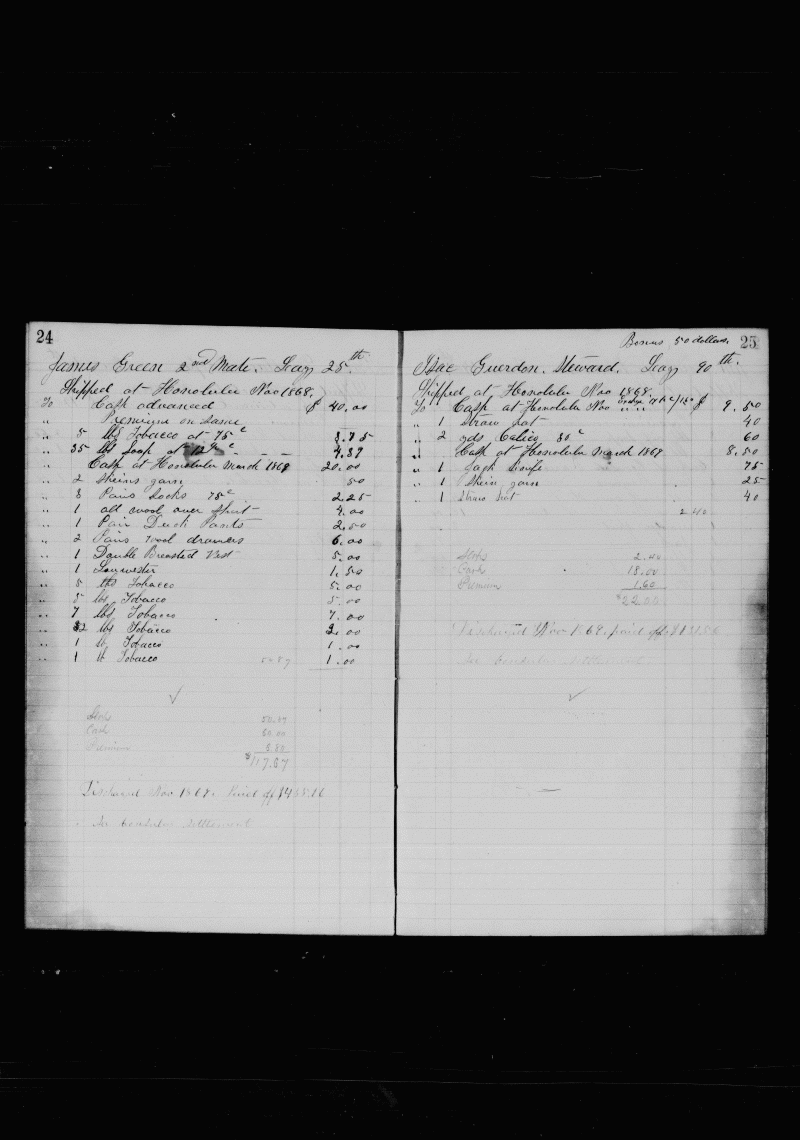 24
James Green 2nd Mate. Lay 25th
Shipped at Honolulu Nov 1868.
To Cash advanced $ 40.00
" Premium on Same
" 5 lbs Tobacco at 75c 3.75
" 35 lbs Soap at 12 c 4.37
" Cash at Honolulu March 1869 20.00
" 2 Skeins yarn 50
" 3 Pairs Socks 75c 2.25
" 1 all wool over Shirt 4.00
" 1 Pair Duck Pants 2.50
" 2 Pairs wool drawers 6.00
" 1 Double Breasted Vest 5.00
" 1 Souwester 1.50
" 5 lbs Tobacco 5.00
" 5 lbs Tobacco 5.00
" 7 lbs Tobacco 7.00
" 2 lbs Tobacco 2.00
" 1 lb Tobacco 1.00
" 1 lb Tobacco 50.87 1.00
✓
Slops 50.87
Cash 60.00
Premium 6.80
$117.67
Discharged Nov 1869. Paid off
See Honolulu Settlement
Bonus 50 dollars. 25
Isac Guerdon. Steward. Lay 90th.
Shipped at Honolulu Nov 1868.
To Cash at Honolulu Nov " " $ 9.50
" 1 Straw hat 40
" 2 yds Calico 30c 60
" Cash at Honolulu March 1869 8.50
" 1 Jack knife 75
" 1 Skein yarn 25
" 1 Straw hat 40
2.40
Slops 2.40
Cash 18.00
Premium 1.60
$22.00
Discharged Nov 1869. paid off
See Honolulu Settlement
✓